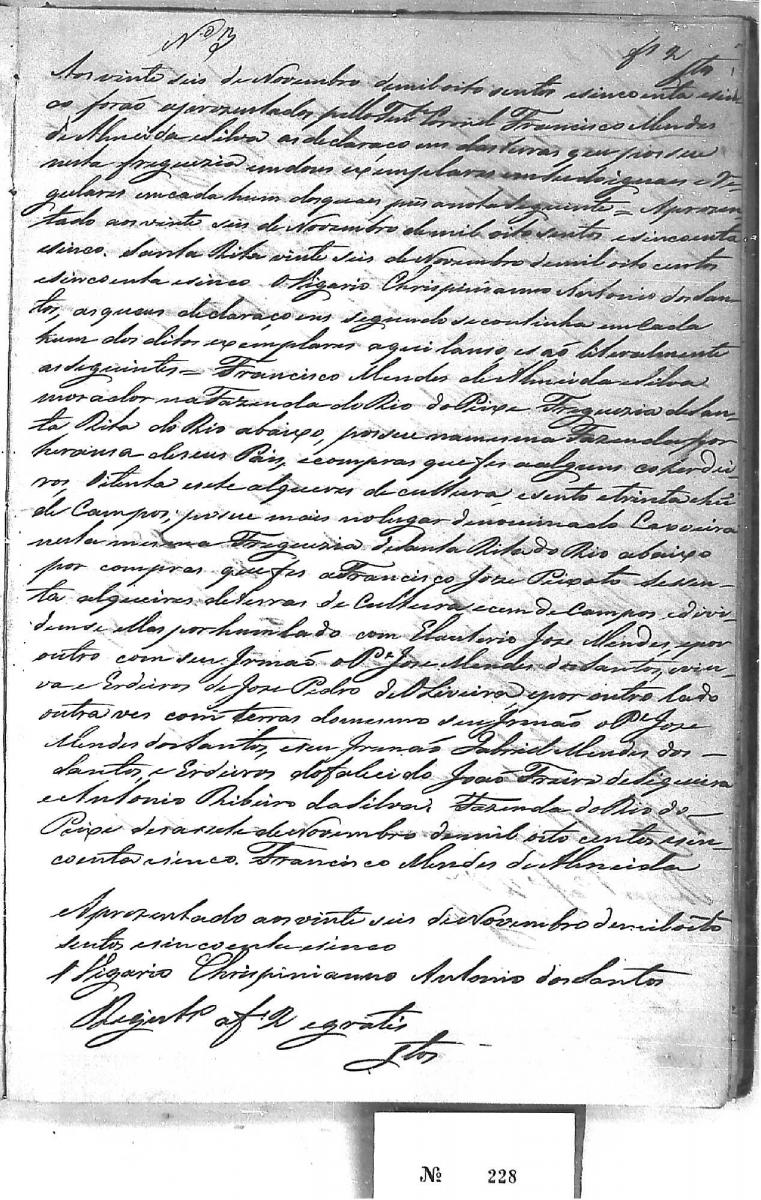 Nº 3
fs 2
Stos
Aos vinte seis de Novembro de mil oito sentos e sincoenta e sin-
co forão aprezentados pello Tete Corel Francisco Mendes
de Almeida e Silva as declaraçoens das terras que possue
nesta freguezia em dous exemplares em tudo iguaes e re-
gulares em cada hum dos quaes pus a nota seguinte = Aprezen-
tado aos vinte seis de Novembro de mil oito sentos e sincoenta
e sinco. Santa Rita vinte seis de Novembro de mil oito centos
e sincoenta e sinco O Vigario Chrispinianno Antonio dos San-
tos, as quaes declaraçoens segundo se continha em cada
hum dos ditos exemplares aqui lanso, e são literalmente
as seguintes = Francisco Mendes de Almeida e Silva
morador na Fazenda do Rio do Peixe Freguezia de San-
ta Rita do Rio abaixo, possue na mesma Fazenda por
heransa de seus Pais, e compras que fes a alguns coherdei-
ros oitenta e sete alqueres de cultura, e sento e trinta e hũ
de Campos; possue mais no lugar denominado Caxoeira
nesta mesma Freguezia de Santa Rita do Rio abaixo
por compras que fes a Francisco Joze Peixoto sessen-
ta alqueires de terras de Cultura e cem de Campos, e divi-
dem se ellas por hum lado com Elauterio Joze Mendes, e por
outro com seu Irmão o Pe Joze Mendes dos Santos, viu-
va e Erdeiros de Joze Pedro de Oliveira e por outro lado
outra ves com terras do mesmo seu Irmão o Pe Joze
Mendes dos Santos, e seu Irmão Gabriel Mendes dos
Santos, e Erdeiros do falecido João Freire de Siqueira
e Antonio Ribeiro da Silva. Fazenda do Rio do
Peixe desasete de Novembro de mil oito centos e sin-
coenta e sinco. Francisco Mendes de Almeida
Aprezentado aos vinte seis de Novembro de mil oito
sentos e sincoenta e sinco
O Vigario Chrispinianno Antonio dos Santos
Regisdo a fs 2 e gratis
Stos
Nº 228